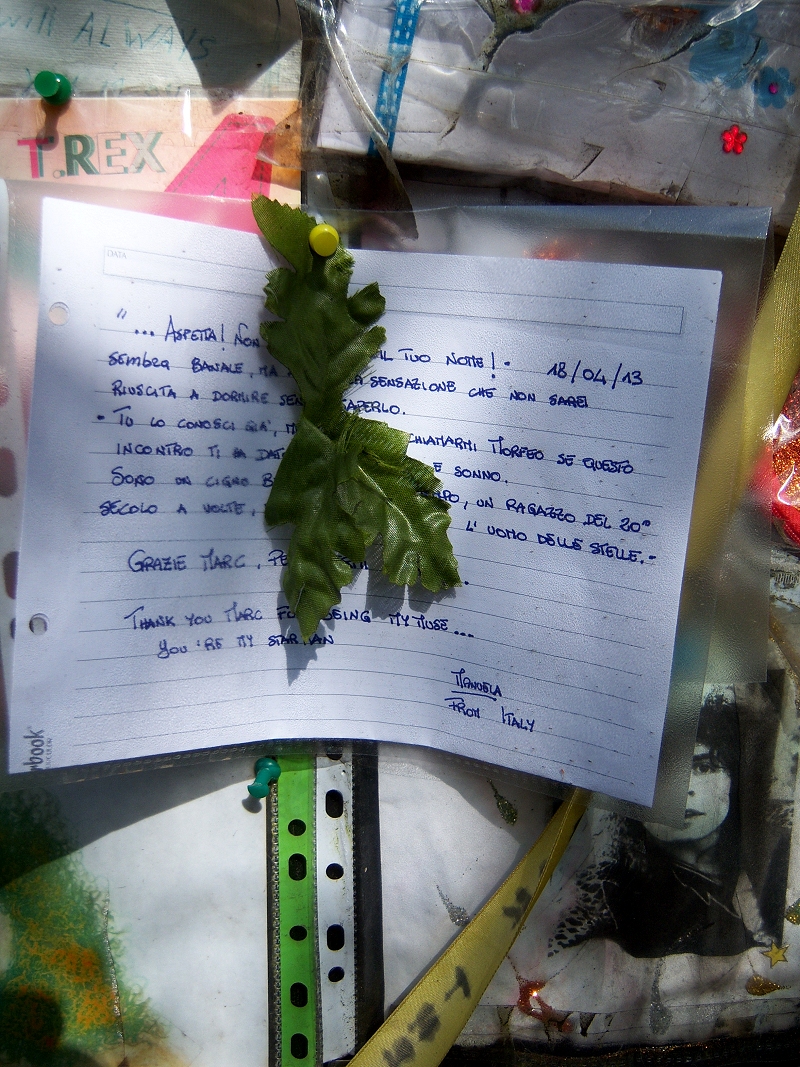 WILL ALWAYS
T.REX
DATA
"... ASPETTA! NON IL TUO NOME! -
18/04/13
SEMBRA BANALE, MA SENSAZIONE CHE NON SAREI
RIUSCITA A DORMIRE SEN SAPERLO.
- TU LO CONOSCI GIÀ, CHIAMARMI MORFEO SE QUESTO
INCONTRO TI HA DAT E SONNO.
SONO UN CIGNO B MPO, UN RAGAZZO DEL 20°
SECOLO A VOLTE, L'UOMO DELLE STELLE.-
GRAZIE MARC, PE
THANK YOU MARC FO BEING MY MUSE...
YOU'RE MY STARMAN
MANUELA
FROM ITALY
book